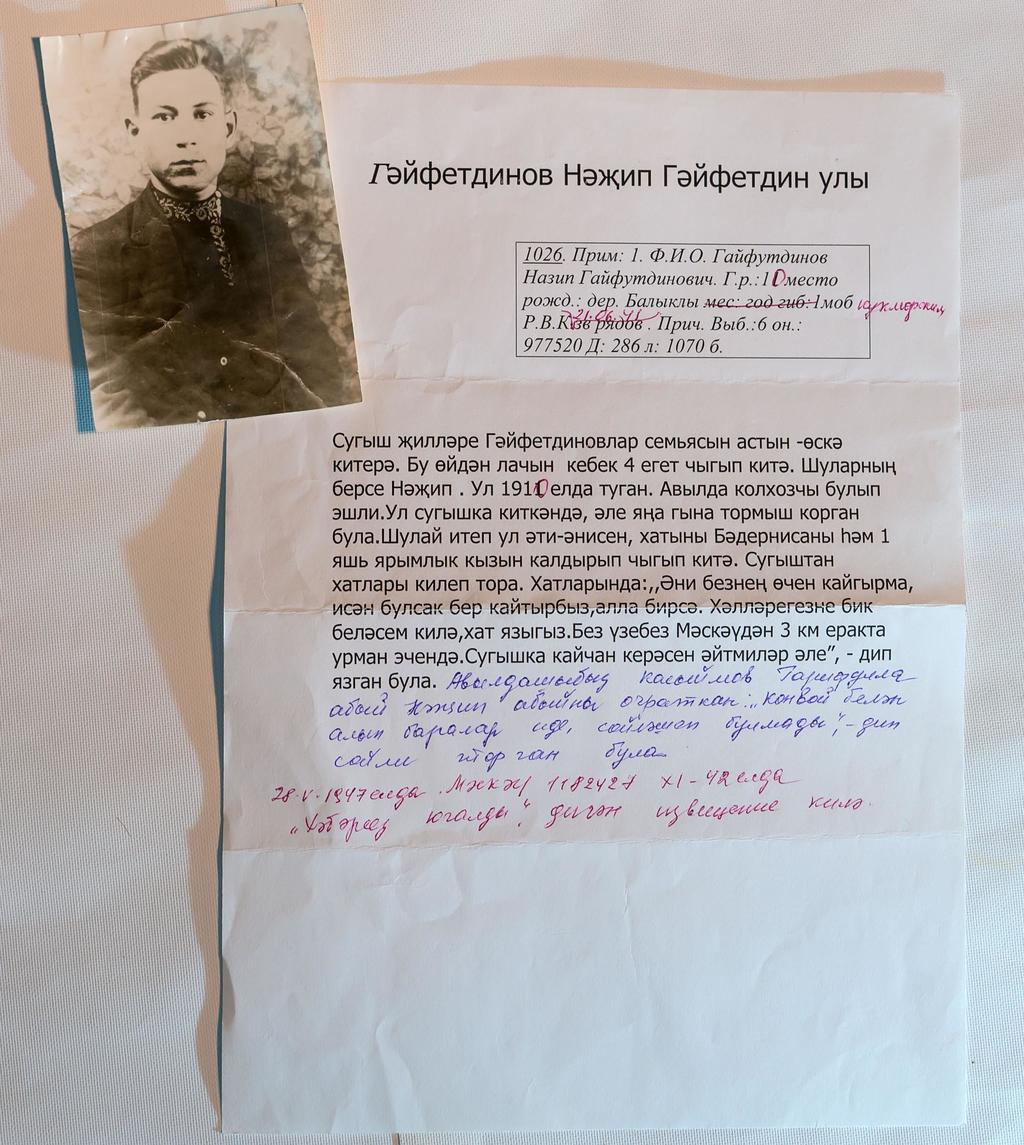 Гәйфетдинов Нәҗип Гәйфетдин улы
1026. Прим: 1. Ф.И.О. Гайфутдинов
Назип Гайфутдинович. Г.р.:10место
рожд.: дер. Балыклы мес: год гиб:1моб кукморским
21.06.41
Р.В.К. рядов . Прич. Выб.:6 он.:
977520 Д: 286 л: 1070 б.
Сугыш җилләре Гәйфетдиновлар семьясын астын -өскә
китерә. Бу өйдән лачын кебек 4 егет чыгып китә. Шуларның
берсе Нәҗип . Ул 1910 елда туган. Авылда колхозчы булып
эшли.Ул сугышка киткәндә, әле яңа гына тормыш корган
була.Шулай итеп ул әти-әнисен, хатыны Бәдернисаны һәм 1
яшь ярымлык кызын калдырып чыгып китә. Сугыштан
хатлары килеп тора. Хатларында:,,Әни безнең өчен кайгырма,
исән булсак бер кайтырбыз,алла бирсә. Хәлләрегезне бик
беләсем килә,хат языгыз.Без үзебез Мәскәүдән 3 км еракта
урман эчендә.Сугышка кайчан керәсен әйтмиләр әле”, - дип
язган була. Авылдашыбыз Касыймов Гарифулла
абый Нәҗип абыйны очраткан: „Конвой белән
алып баралар иде, сөйләшеп булмады“, - дип
сөйли торган була
28.V.1947 елда Мәскәү 1182427 XI-42 елда
„Хәбәрсез югалды“ дигән извещение килә.